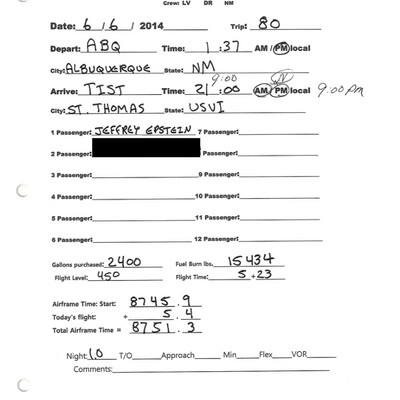 Crew: LV DR NM
Date: 6/6/2014 Trip: 80
Depart: ABQ Time: 1:37 AM/PM local
City: ALBUQUERQUE State: NM
9:00
Arrive: TIST Time: 21:00 AM/PM local 9:00 PM
City: ST. THOMAS State: USVI
1 Passenger: JEFFREY EPSTEIN 7 Passenger:
2 Passenger: Passenger:
3 Passenger: 9 Passenger:
4 Passenger: 10 Passenger:
5 Passenger: 11 Passenger:
6 Passenger: 12 Passenger:
Gallons purchased: 2400 Fuel Burn lbs. 15434
Flight Level: 450 Flight Time: 5+23
Airframe Time: Start: 8745.9
Today's flight: + 5.4
Total Airframe Time = 8751.3
Night: 1.0 T/O Approach Min Flex VOR
Comments: